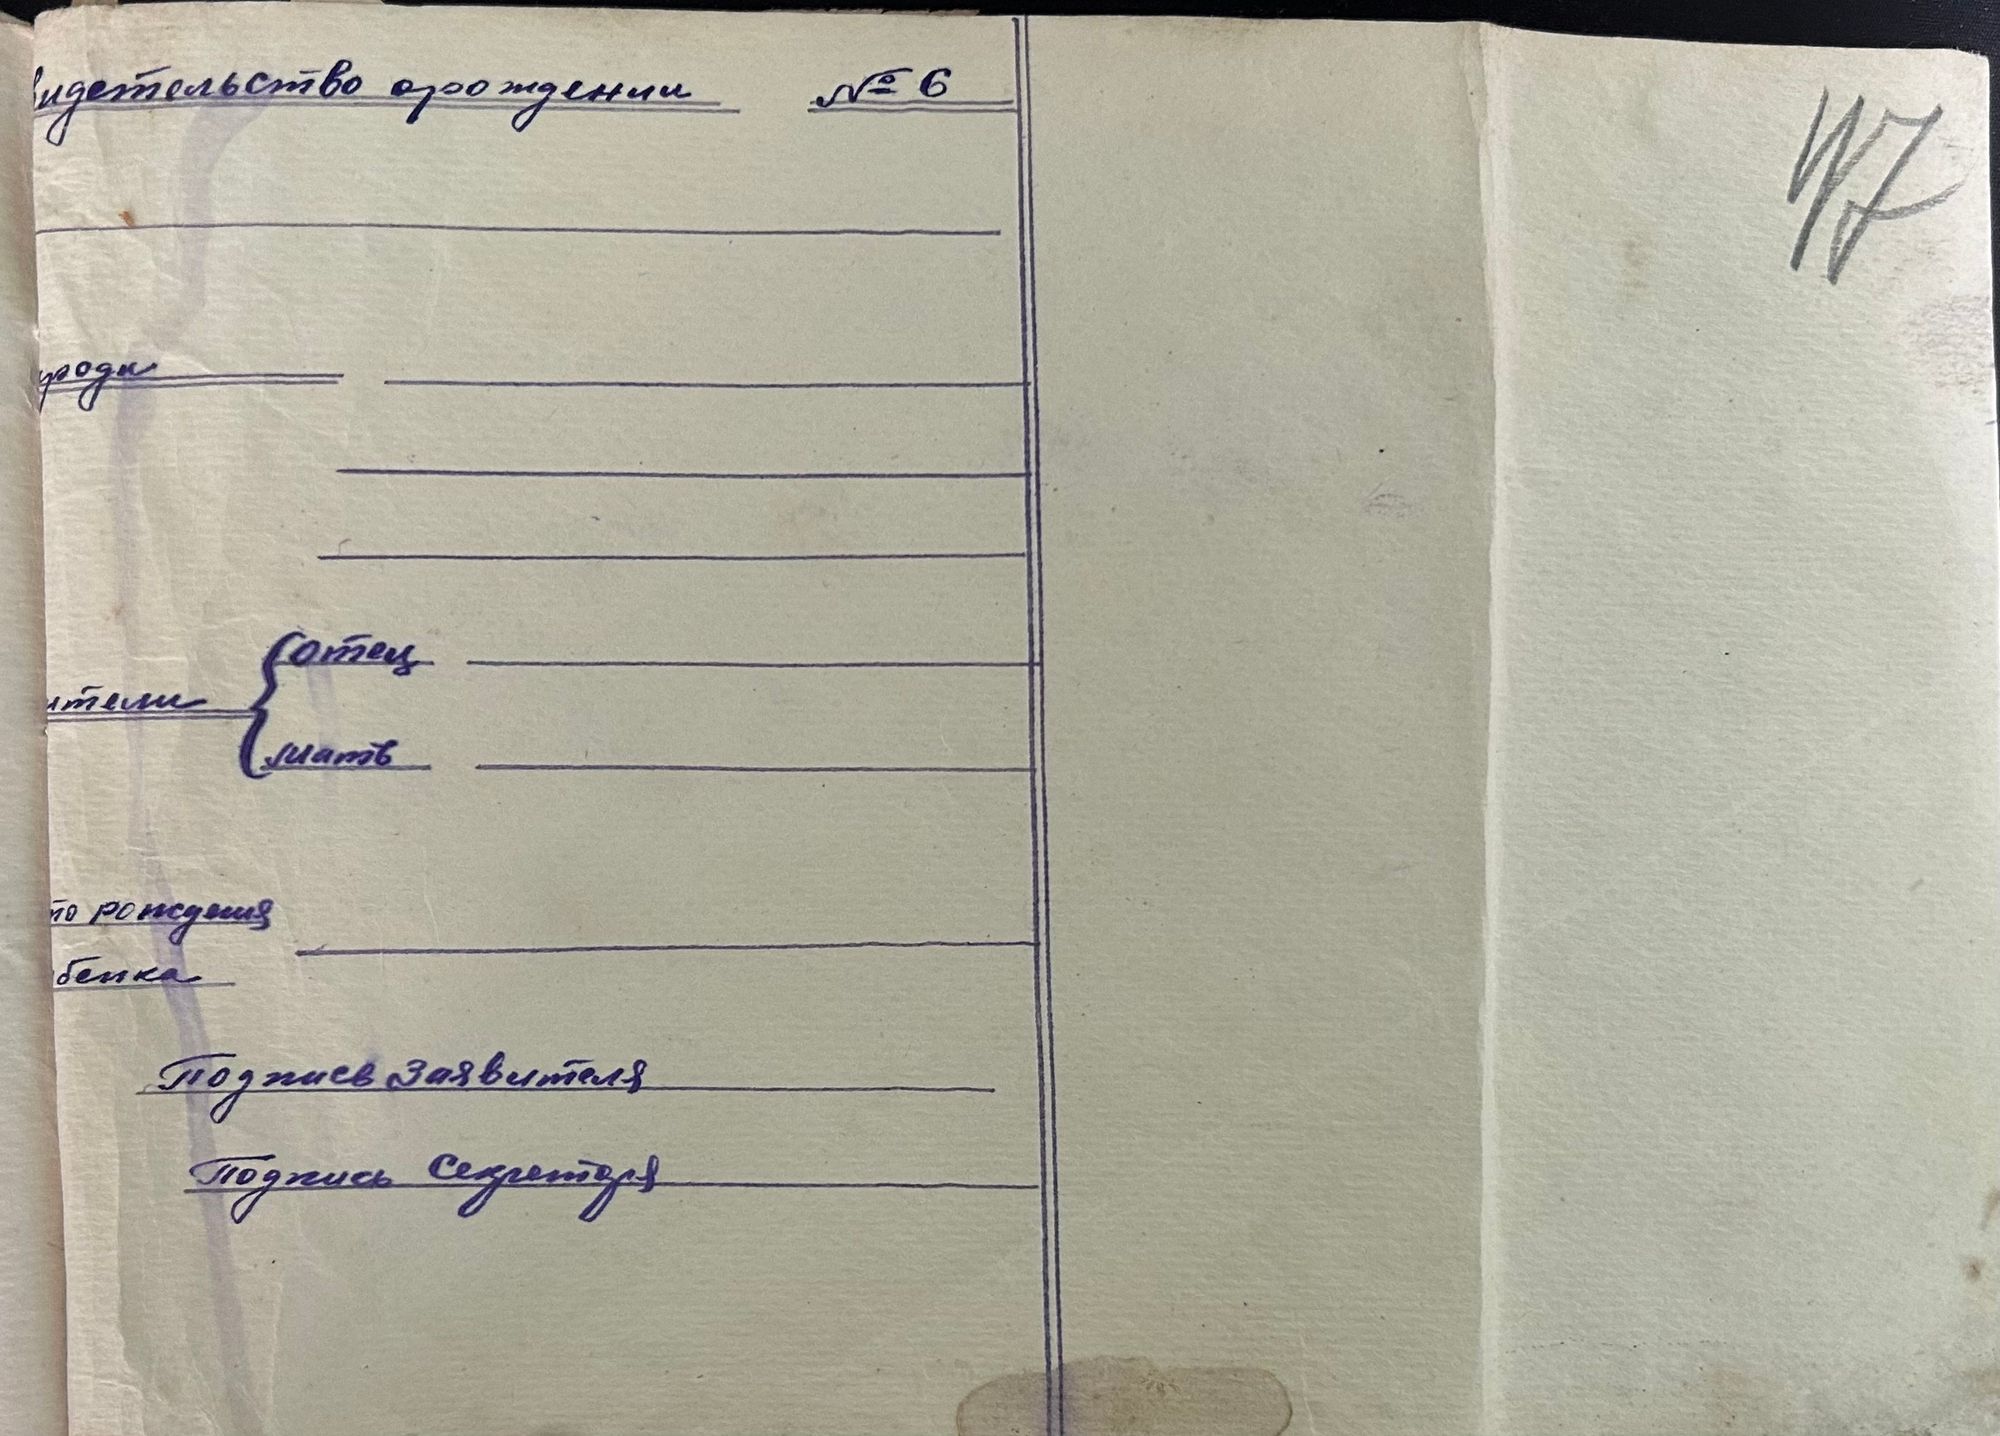 видетельство о рождении № 6
47
уроди
отец
ители
мать
то рождения
бенка
Подпись Заявителя
Подпись Секретаря